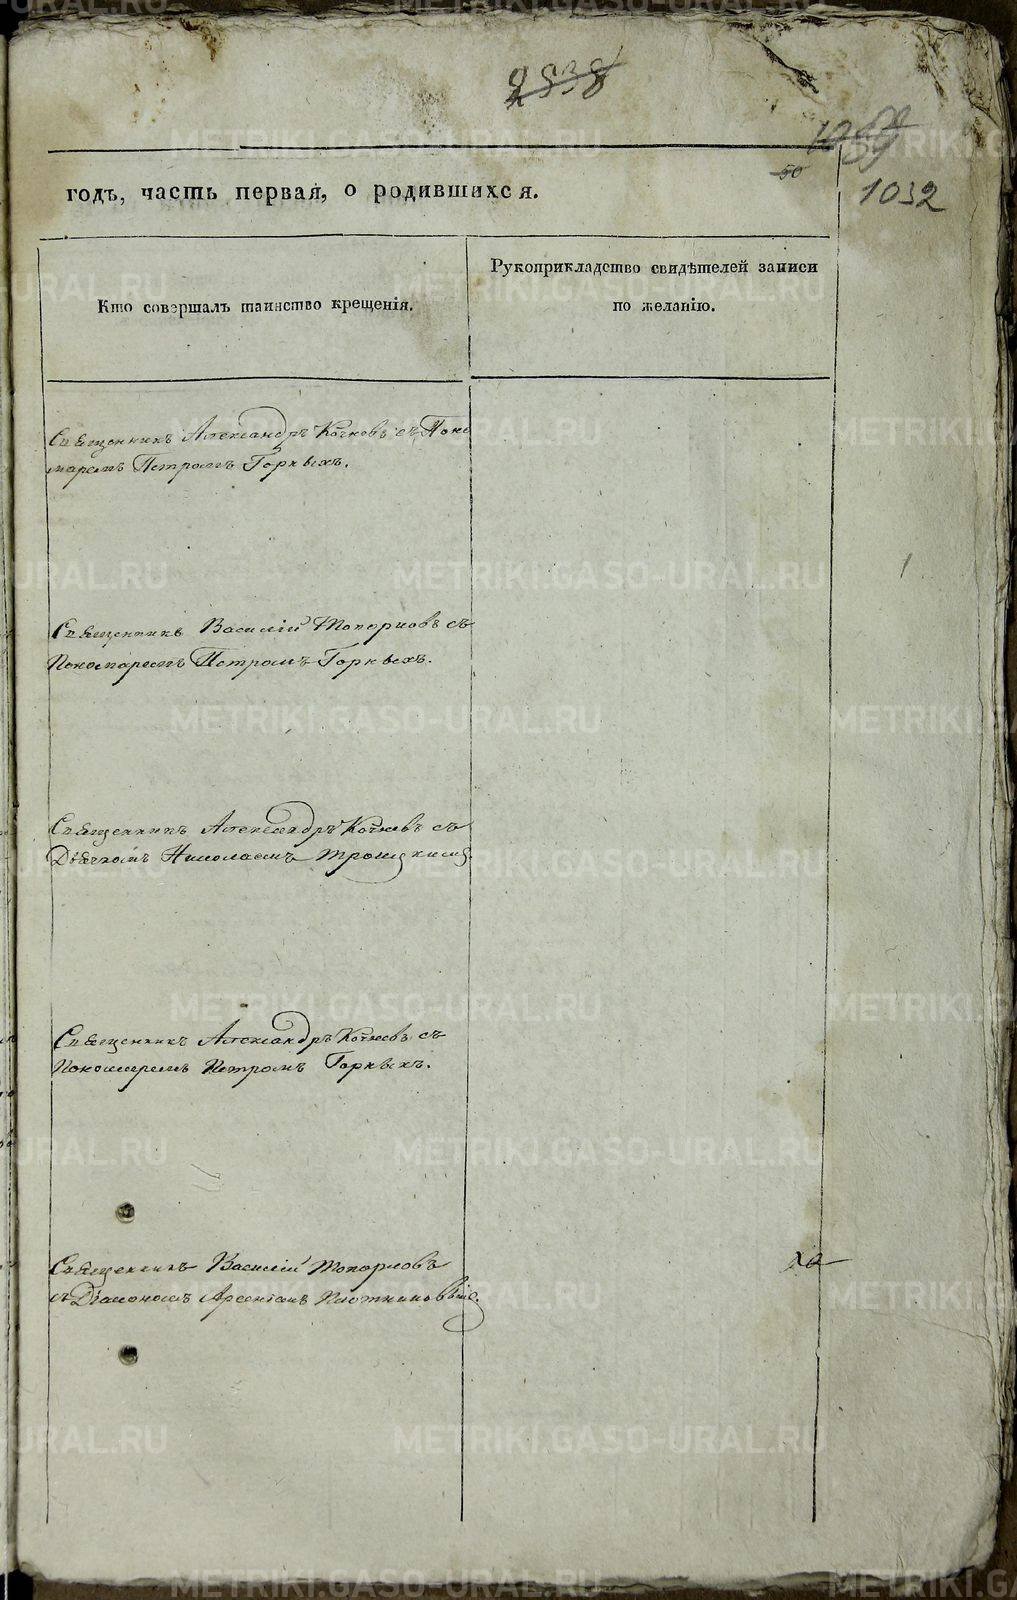 2838
1059
50
1032
годъ, часть первая, о родившихся.
Кто совершалъ таинство крещенія.
Рукоприкладство свидѣтелей записи
по желанію.
Священникъ Александръ Кочневъ съ Поно
маремъ Петромъ Горкыхъ.
Священникъ Василій Топорковъ съ
Пономаремъ Петромъ Горкыхъ.
Священникъ Александръ Кочневъ съ
Дьячкомъ Николаемъ Троицкимъ.
Священникъ Александръ Кочневъ съ
Пономаремъ Петромъ Горкыхъ.
Священникъ Василій Топорковъ
съ Діакономъ Арсеніемъ Плотниковымъ.
METRIKI.GASO-URAL.RU